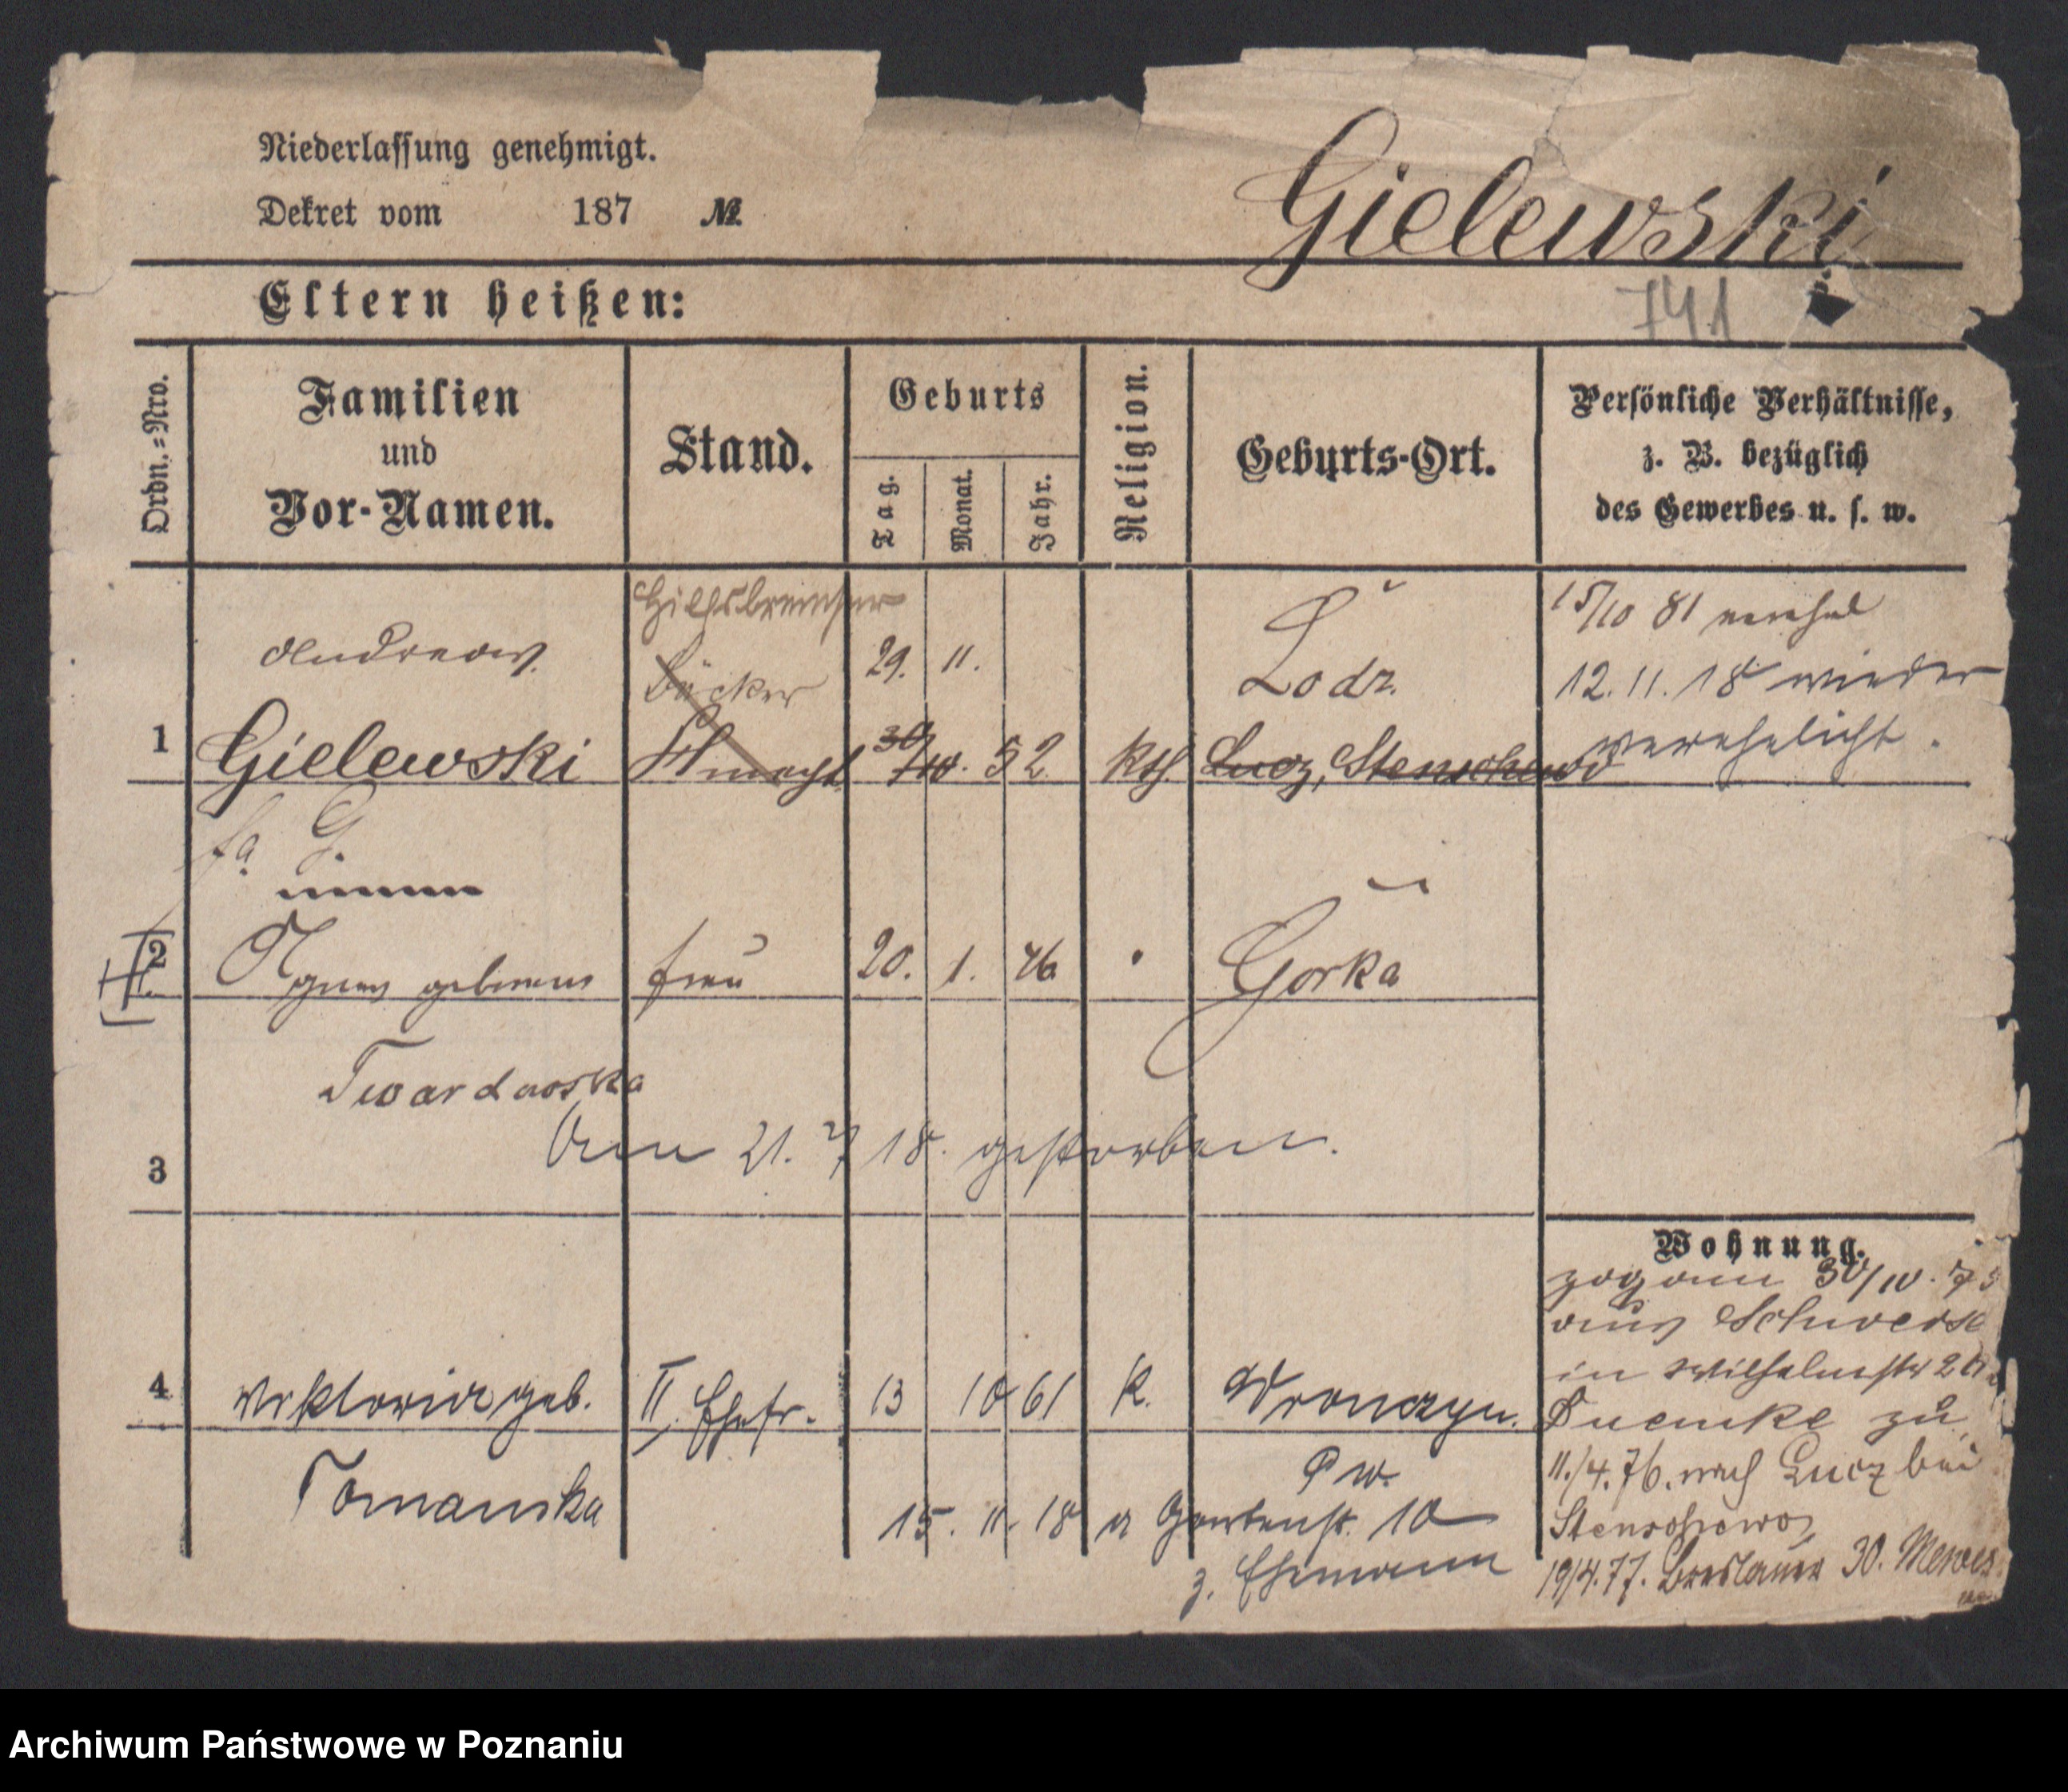 Niederlassung genehmigt.
Dekret vom 187 №
Gielewski
741
Eltern heißen:
Ordn.=Nro.
Familien
und
Vor-Namen.
Stand.
Geburts
Tag.
Monat.
Jahr.
Religion.
Geburts-Ort.
Persönliche Verhältnisse,
z. B. bezüglich
des Gewerbes u. s. w.
Hilfsbremser
15/10 81 verehel
Andreas
Bäcker
29. 11.
Lodz.
12. 11. 18 wieder
verehelicht.
1 Gielewski 30/10. 52 kth. Lucz, Stenschewo
fa G.
2 Agnes geborene Frau 20. 1. 46 Gorka
Twardowska
Am 21. 7 18. gestorben.
3
Wohnung.
zog am 30/10. 75
aus Schwerse
in Wilhelmstr 26
zu
4 Viktoria geb. II. Ehefr. 13 10 61 K. Wronczyn.
11./4. 76. nach Lucz bei
Tomanska
P w.
15. 11. 18 a Gartenstr. 10
Stenschewo
z. Ehemann
19/4. 77. Breslauer 30.
Archiwum Państwowe w Poznaniu